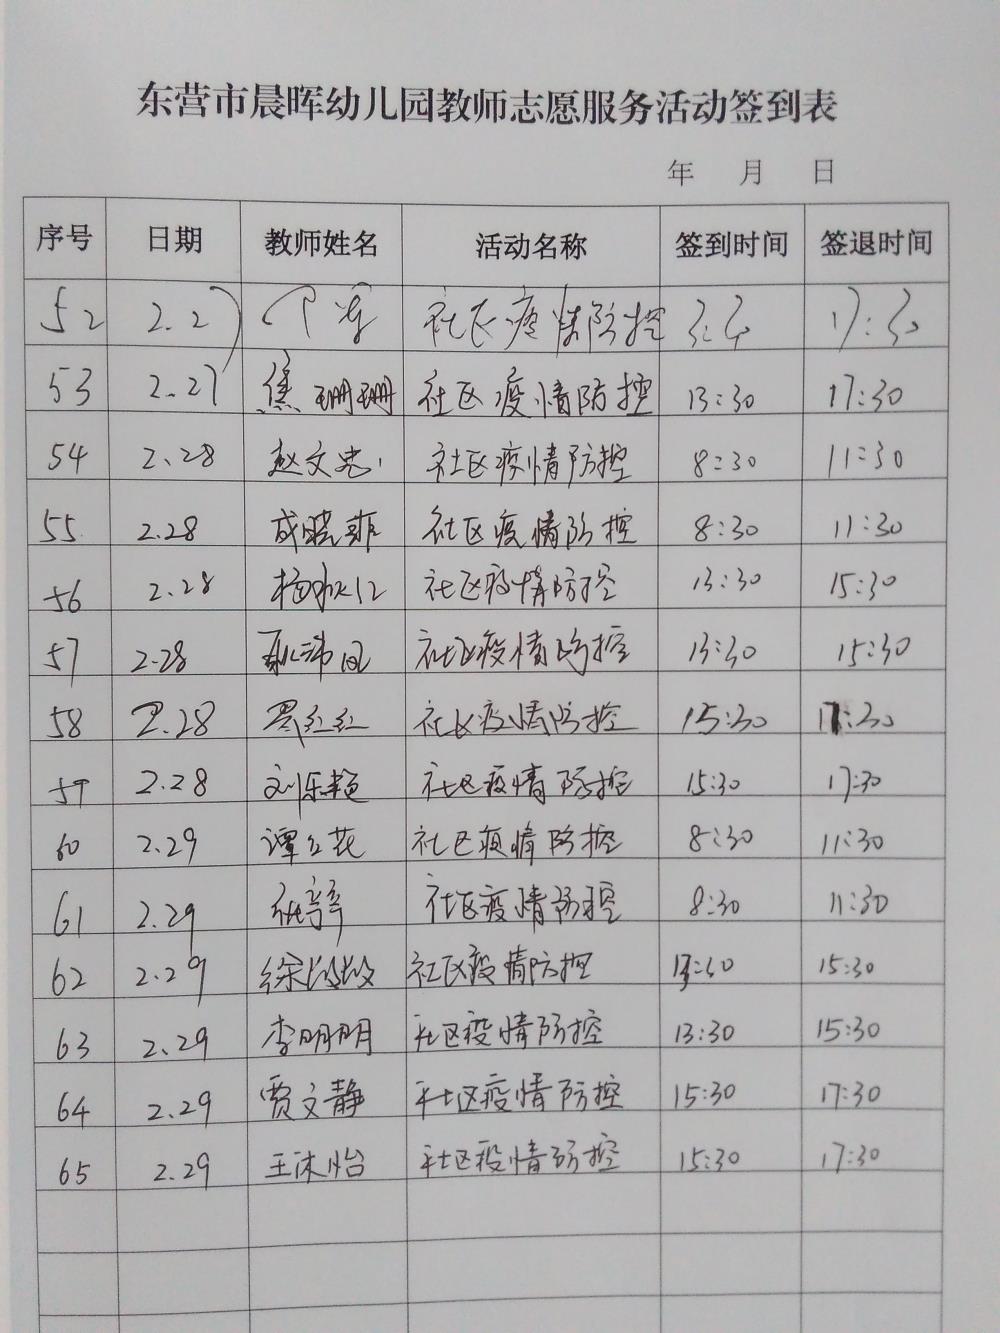 东营市晨晖幼儿园教师志愿服务活动签到表
年 月 日
序号 日期 教师姓名 活动名称 签到时间 签退时间
52 2.27 社区疫情防控 17:30
53 2.27 焦珊珊 社区疫情防控 13:30 17:30
54 2.28 赵文忠 社区疫情防控 8:30 11:30
55 2.28 成晓菲 社区疫情防控 8:30 11:30
56 2.28 社区疫情防控 13:30 15:30
57 2.28 社区疫情防控 13:30 15:30
58 2.28 红红 社区疫情防控 15:30 17:30
59 2.28 刘乐 社区疫情防控 15:30 17:30
60 2.29 谭 花 社区疫情防控 8:30 11:30
61 2.29 社区疫情防控 8:30 11:30
62 2.29 徐 社区疫情防控 13:30 15:30
63 2.29 李明明 社区疫情防控 13:30 15:30
64 2.29 贾文静 社区疫情防控 15:30 17:30
65 2.29 王沐怡 社区疫情防控 15:30 17:30